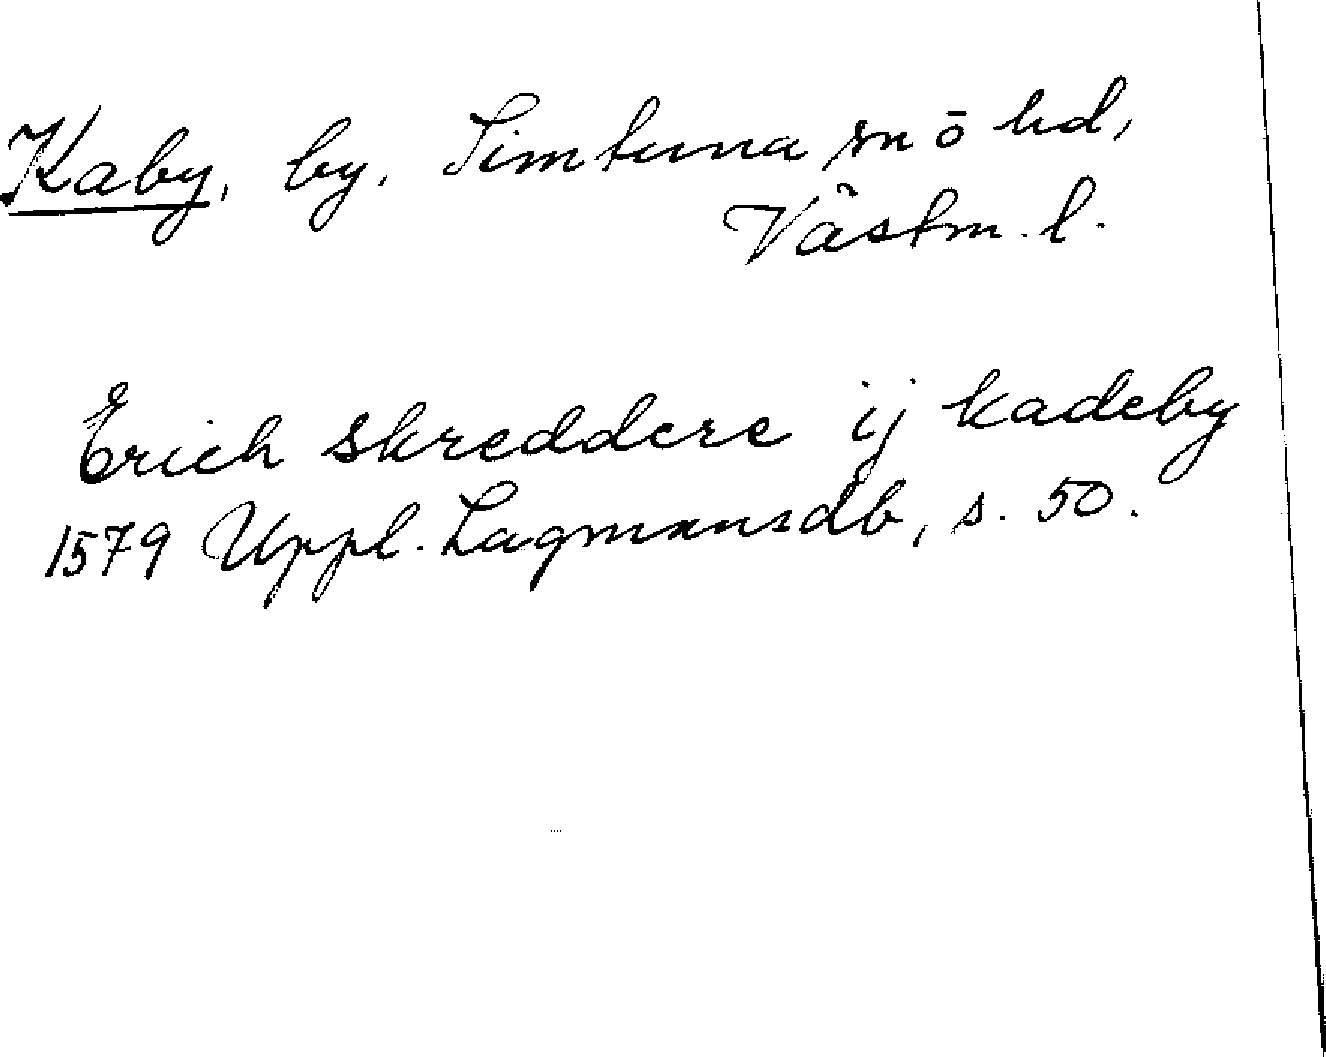 Kaby, by, Simtuna sn ō hd,
Västm. l.
Erich skreddere ij kadeby
1579 Uppl. Lagmansdb, s. 50.